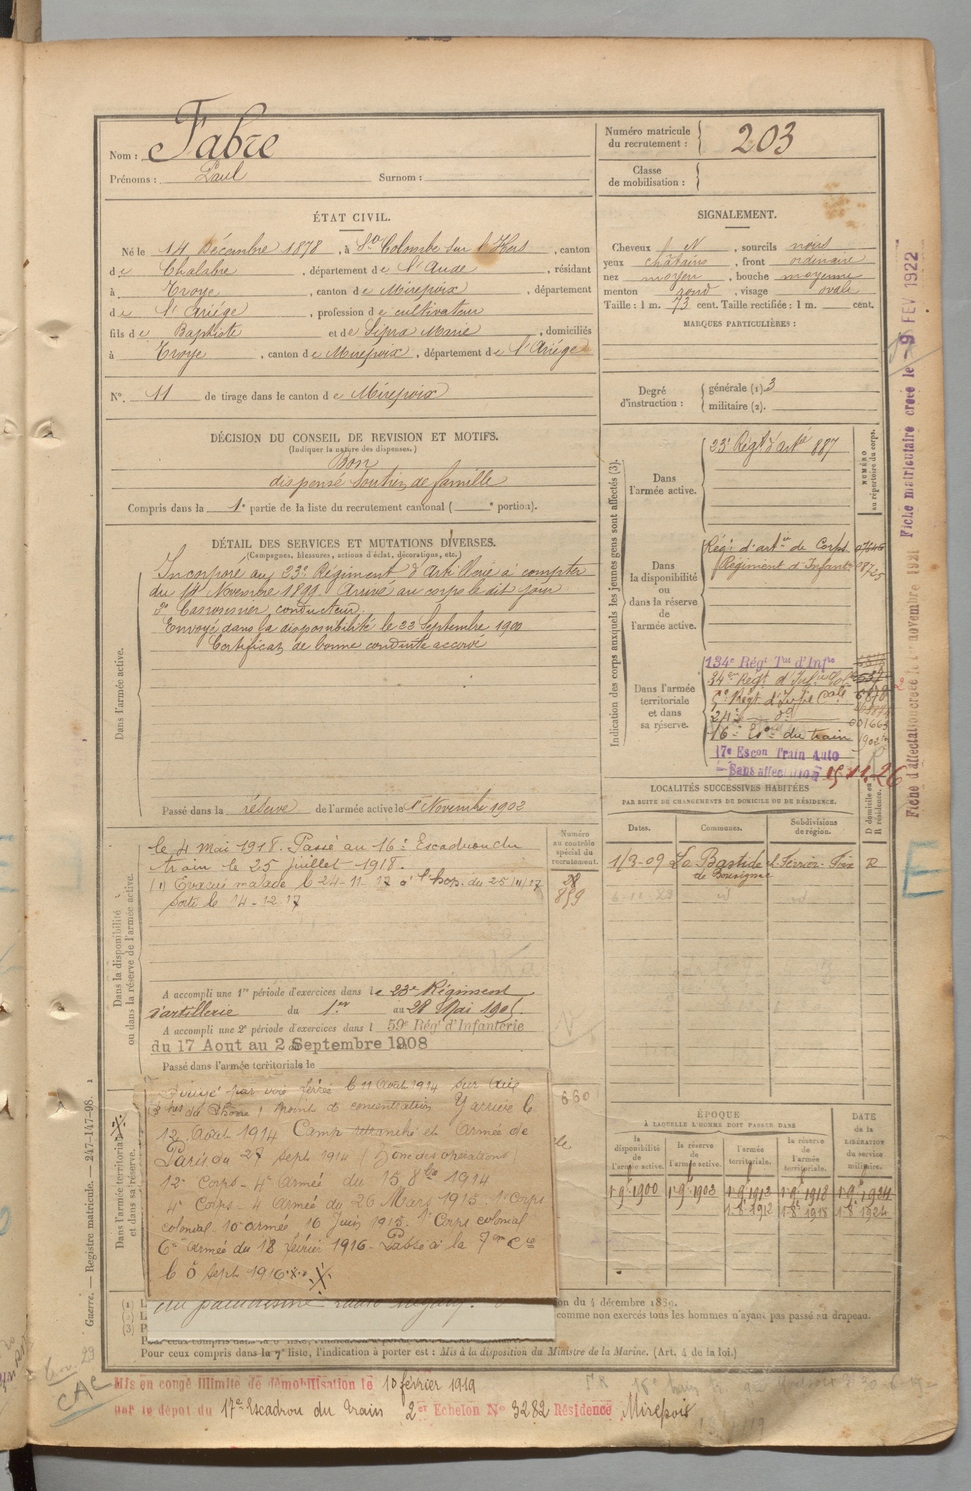 Nom : Fabre
Prénoms : Paul Surnom :
Numéro matricule du recrutement : 203
Classe de mobilisation :
ÉTAT CIVIL.
Né le 14 Décembre 1878, à Ste Colombe sur l'Hers, canton
de Chalabre, département de l'Aude, résidant
à Troye, canton de Mirepoix, département
de l'Ariége, profession de cultivateur
fils de Baptiste et de Sepra Marie, domiciliés
à Troye, canton de Mirepoix, département de l'Ariége
N°. 11 de tirage dans le canton de Mirepoix
SIGNALEMENT.
Cheveux N, sourcils noirs
yeux châtains, front ordinaire
nez moyen, bouche moyenne
menton rond, visage ovale
Taille : 1 m. 73 cent. Taille rectifiée : 1 m. cent.
MARQUES PARTICULIÈRES :
Degré d'instruction :
générale (1). 3
militaire (2).
DÉCISION DU CONSEIL DE REVISION ET MOTIFS.
(Indiquer la nature des dispenses.)
Bon
dispensé soutien de famille
Compris dans la 1e partie de la liste du recrutement cantonal ( e portion).
DÉTAIL DES SERVICES ET MUTATIONS DIVERSES.
(Campagnes, blessures, actions d'éclat, décorations, etc.)
Dans l'armée active.
Incorporé au 23e Régiment d'Artillerie à compter
du 14 Novembre 1899. Arrivé au corps le dit jour
2e Canonnier conducteur
Envoyé dans la disponibilité le 22 Septembre 1900
Certificat de bonne conduite accordé
Passé dans la réserve de l'armée active le 1er Novembre 1902
Indication des corps auxquels les jeunes gens sont affectés (3).
NUMÉRO au répertoire du corps.
Dans l'armée active.
23e Régt d'artie 887
Dans la disponibilité ou dans la réserve de l'armée active.
Régt d'artie de Corps
Régiment d'Infant
Dans l'armée territoriale et dans sa réserve.
134e Régt Tal d'Infie
34e Régt d'Infie Col
5e Régt d'Infie Cale
24e do
16e Esca du train
17e Escon Train Auto
Sans affectation 15.11.26
LOCALITÉS SUCCESSIVES HABITÉES
PAR SUITE DE CHANGEMENTS DE DOMICILE OU DE RÉSIDENCE.
Dates. Communes. Subdivisions de région. D domicile ou R résidence.
1/3-09 La Bastide de Bousignac Foix R
6-11-23 id id
Dans la disponibilité ou dans la réserve de l'armée active.
Numéro au contrôle spécial du recrutement.
le 4 mai 1918. Passé au 16e Escadron du
train le 25 juillet 1918.
(1) Evacué malade le 24-11-17 à l'hop. du 25/11/17
sorti le 14-12-17
28
859
A accompli une 1re période d'exercices dans le 23e Régiment
d'artillerie du 1er au 28 Mai 1905.
A accompli une 2e période d'exercices dans l 59e Régt d'Infanterie
du 17 Aout au 2 Septembre 1908
Passé dans l'armée territoriale le
Dans l'armée territoriale et dans sa réserve.
voie ferrée le 11 Août 1914 sur Aix
Bches du Rhône, point de concentration Y arrive le
12 Août 1914 Camp retranché et Armée de
Paris du 27 Sept 1914 (Zone des opérations)
12e Corps - 4e Armée du 15 8bre 1914
4e Corps - 4e Armée du 26 Mars 1915 - 1er Corps
colonial - 10e armée, 16 Juin 1915. 1er Corps colonial
6e Armée du 18 février 1916 - Passé à la 7me Cie
le 6 Sept 1916
ÉPOQUE
À LAQUELLE L'HOMME DOIT PASSER DANS
la disponibilité de l'armée active. la réserve de l'armée active. l'armée territoriale. la réserve de l'armée territoriale.
DATE de la LIBÉRATION du service militaire.
1-9e 1900 1-9e 1903 1-9e 1913 1-9e 1918 1-9e 1924
1-8e 1912 1-8e 1918 1-8e 1924
on du 4 décembre 1889.
comme non exercés tous les hommes n'ayant pas passé au drapeau.
Pour ceux compris dans la 7e liste, l'indication à porter est : Mis à la disposition du Ministre de la Marine. (Art. 4 de la loi.)
Mis en congé illimité de démobilisation le 10 février 1919
par le dépôt du 17e Escadron du Train 2e Echelon No 3282 Résidence Mirepoix
Guerre. — Registre matricule. — 247-147-98.
Fiche matriculaire créée le 9 FEV 1922
Fiche d'affectation créée le 1er novembre 1921
CAC